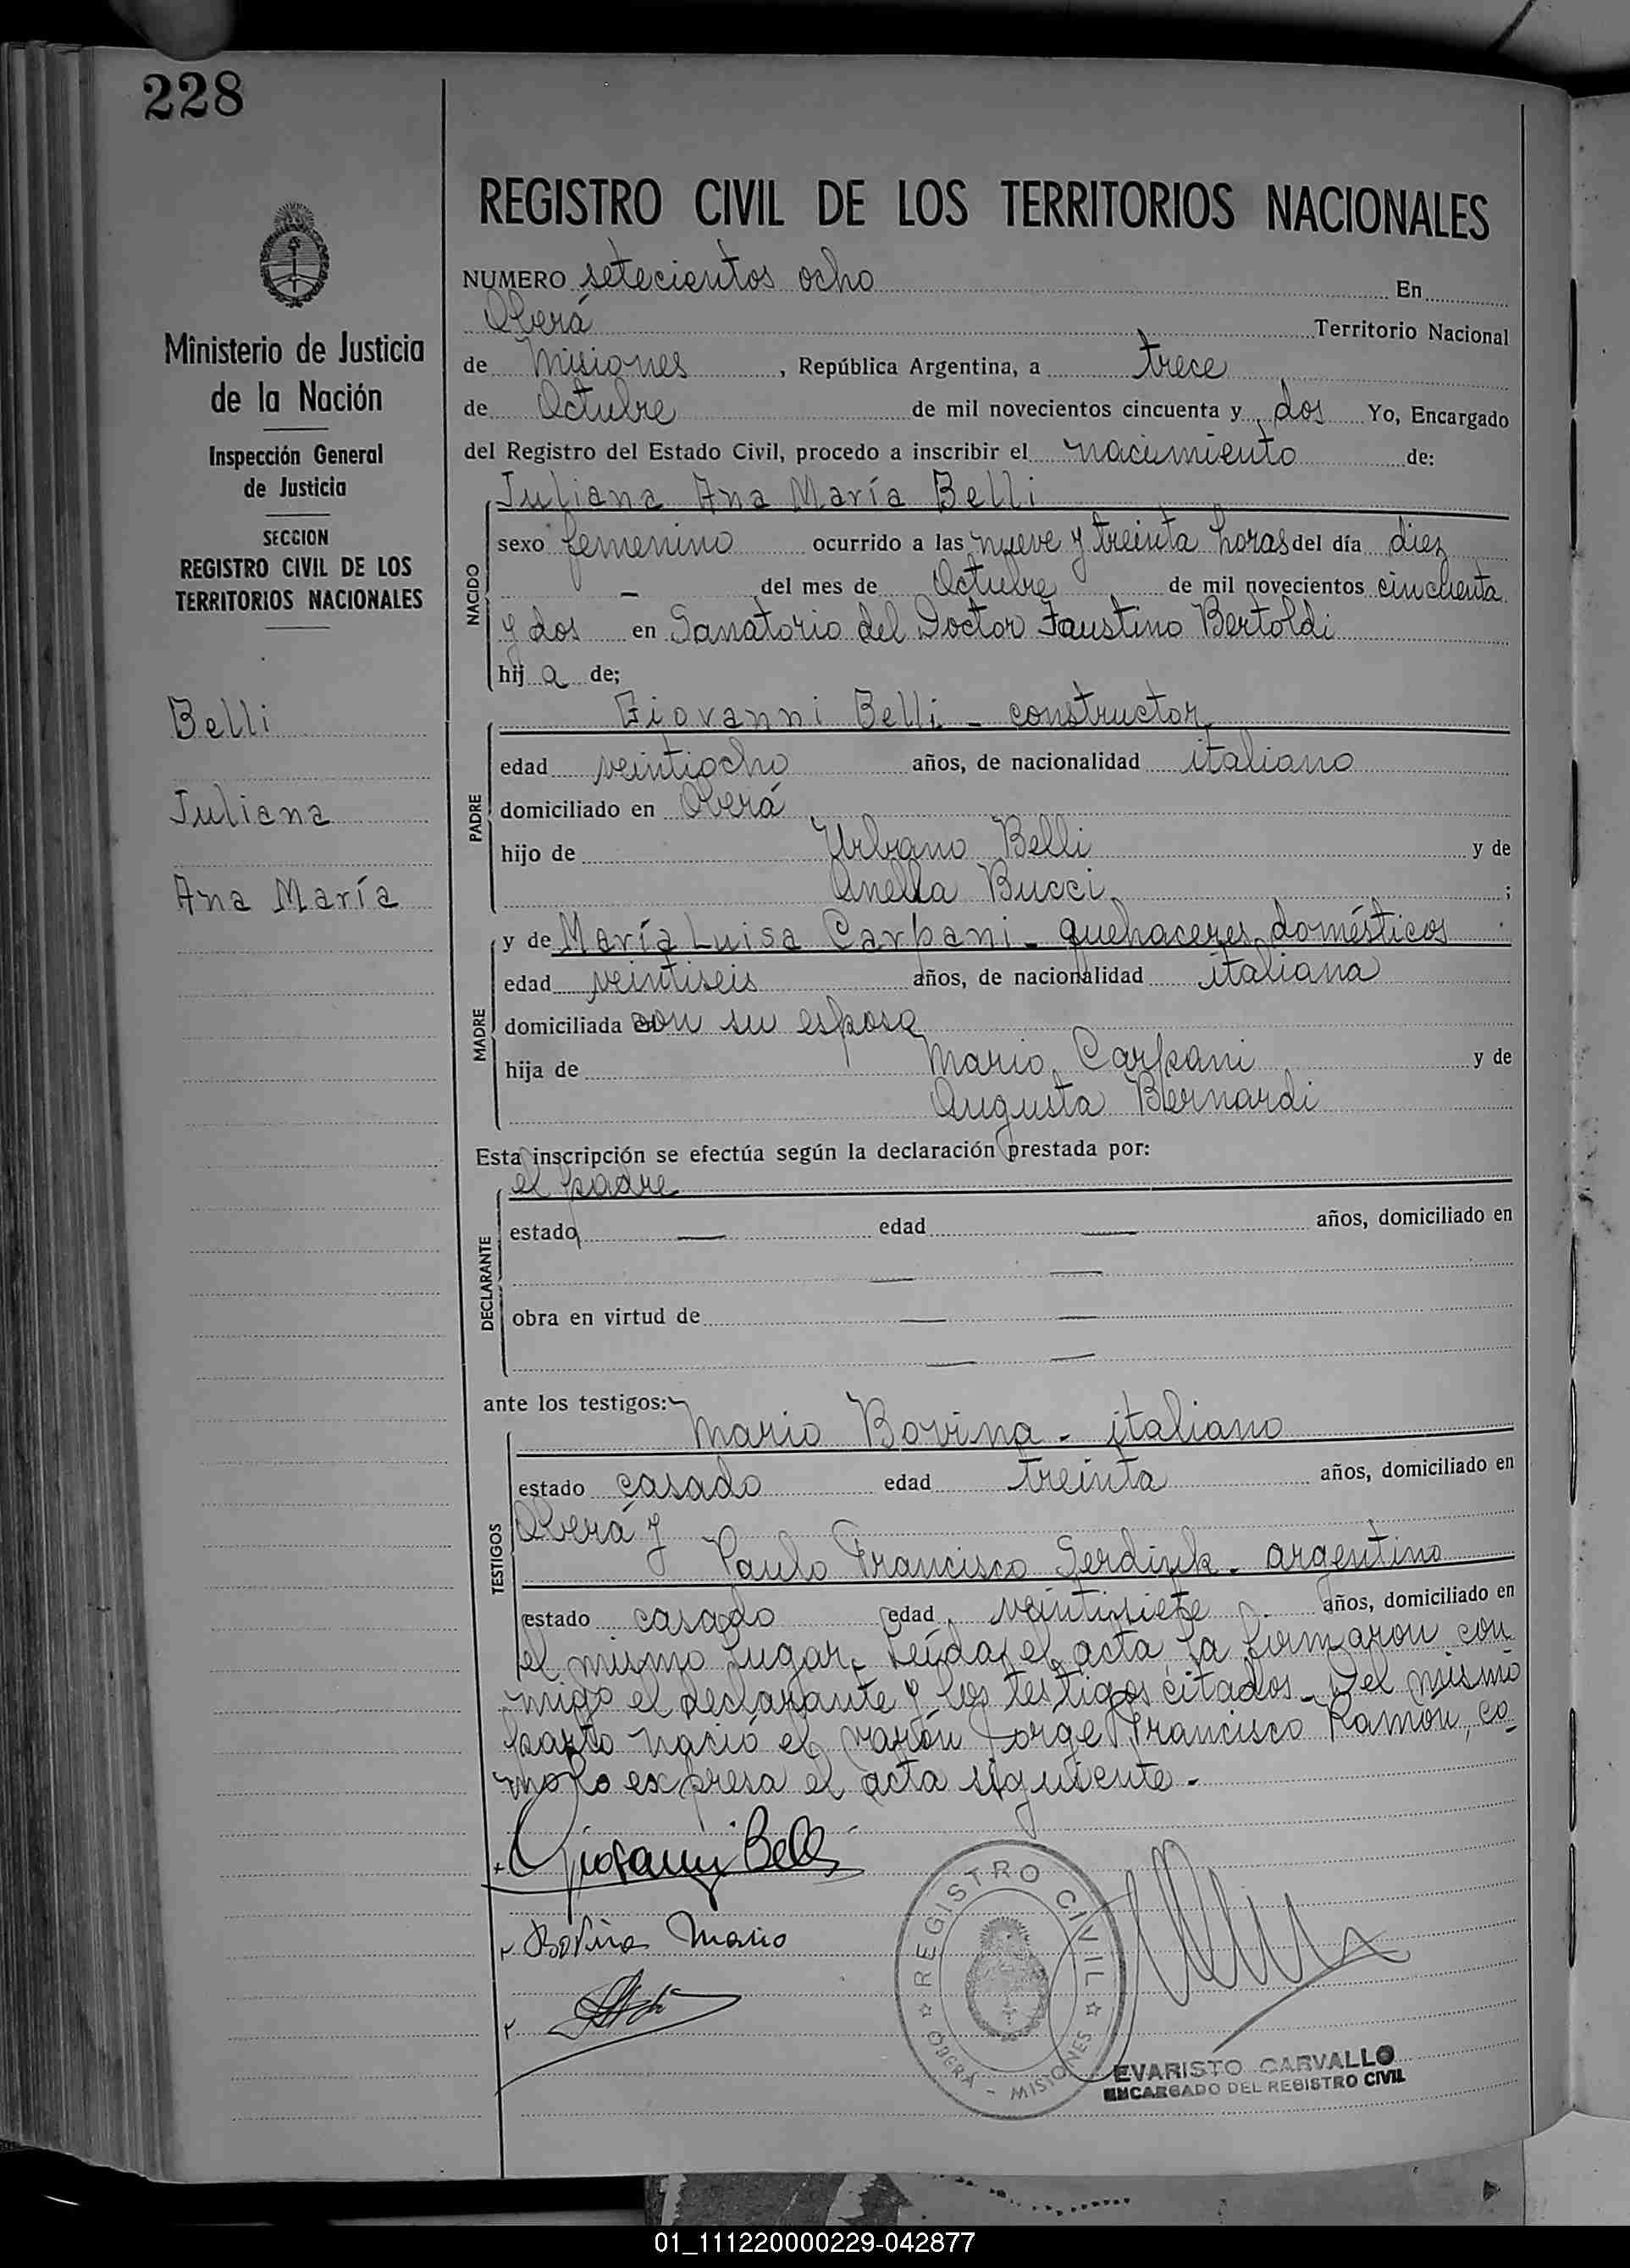 228
REGISTRO CIVIL DE LOS TERRITORIOS NACIONALES
Ministerio de Justicia
de la Nación
Inspección General
de Justicia
SECCION
REGISTRO CIVIL DE LOS
TERRITORIOS NACIONALES
Belli
Juliana
Ana María
NUMERO setecientos ocho En
Oberá Territorio Nacional
de Misiones, República Argentina, a trece
de Octubre de mil novecientos cincuenta y dos Yo, Encargado
del Registro del Estado Civil, procedo a inscribir el nacimiento de:
NACIDO
Juliana Ana María Belli
sexo femenino ocurrido a las nueve y treinta horas del día diez
– del mes de Octubre de mil novecientos cincuenta
y dos en Sanatorio del Doctor Faustino Bertoldi
hij a de;
PADRE
Giovanni Belli - constructor
edad veintiocho años, de nacionalidad italiano
domiciliado en Oberá
hijo de Urbano Belli y de
Anella Bucci ;
MADRE
y de María Luisa Carpani - quehaceres domésticos
edad veintiseis años, de nacionalidad italiana
domiciliada con su esposo
hija de Mario Carpani y de
Augusta Bernardi
Esta inscripción se efectúa según la declaración prestada por:
DECLARANTE
el padre
estado — edad — años, domiciliado en
— —
obra en virtud de — —
— —
ante los testigos:
TESTIGOS
Mario Bovina - italiano
estado casado edad treinta años, domiciliado en
Oberá y
Paulo Francisco Gerdink - argentino
estado casado edad veintisiete años, domiciliado en
el mismo lugar. Leída el acta la firmaron con
migo el declarante y los testigos citados. Del mismo
parto nació el varón Jorge Francisco Ramón, co-
mo lo expresa el acta siguiente.-
Giovanni Belli
Bovina Mario
REGISTRO CIVIL
OBERA - MISIONES
EVARISTO CARVALLO
ENCARGADO DEL REGISTRO CIVIL
01_111220000229-042877